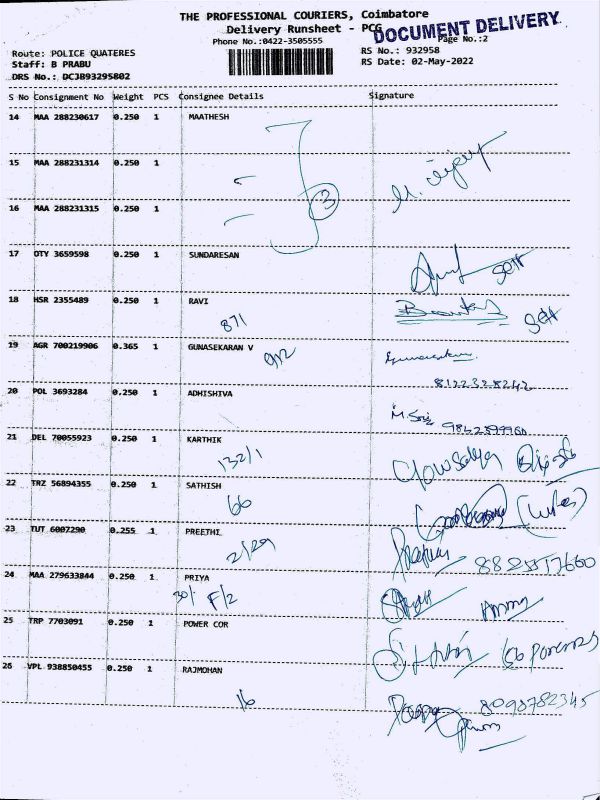 THE PROFESSIONAL COURIERS, Coimbatore
Delivery Runsheet - PCG
DOCUMENT DELIVERY
Phone No.:0422-3505555
Page No.:2
Route: POLICE QUATERES
RS No.: 932958
Staff: B PRABU
RS Date: 02-May-2022
DRS No.: DCJB93295802
S No Consignment No Weight PCS Consignee Details Signature
14 MAA 288230617 0.250 1 MAATHESH
15 MAA 288231314 0.250 1
3
16 MAA 288231315 0.250 1
17 OTY 3659598 0.250 1 SUNDARESAN
18 HSR 2355489 0.250 1 RAVI
871
19 AGR 700219906 0.365 1 GUNASEKARAN V
912
8122328242
20 POL 3693284 0.250 1 ADHISHIVA
9842599960
21 DEL 70055923 0.250 1 KARTHIK
132/1
22 TRZ 56894355 0.250 1 SATHISH
66
23 TUT 6007290 0.255 1 PREETHI
2/29
8825517660
24 MAA 279633844 0.250 1 PRIYA
30/ F/2
25 TRP 7703091 0.250 1 POWER COR
26 VPL 938850455 0.250 1 RAJMOHAN
16
8098782345